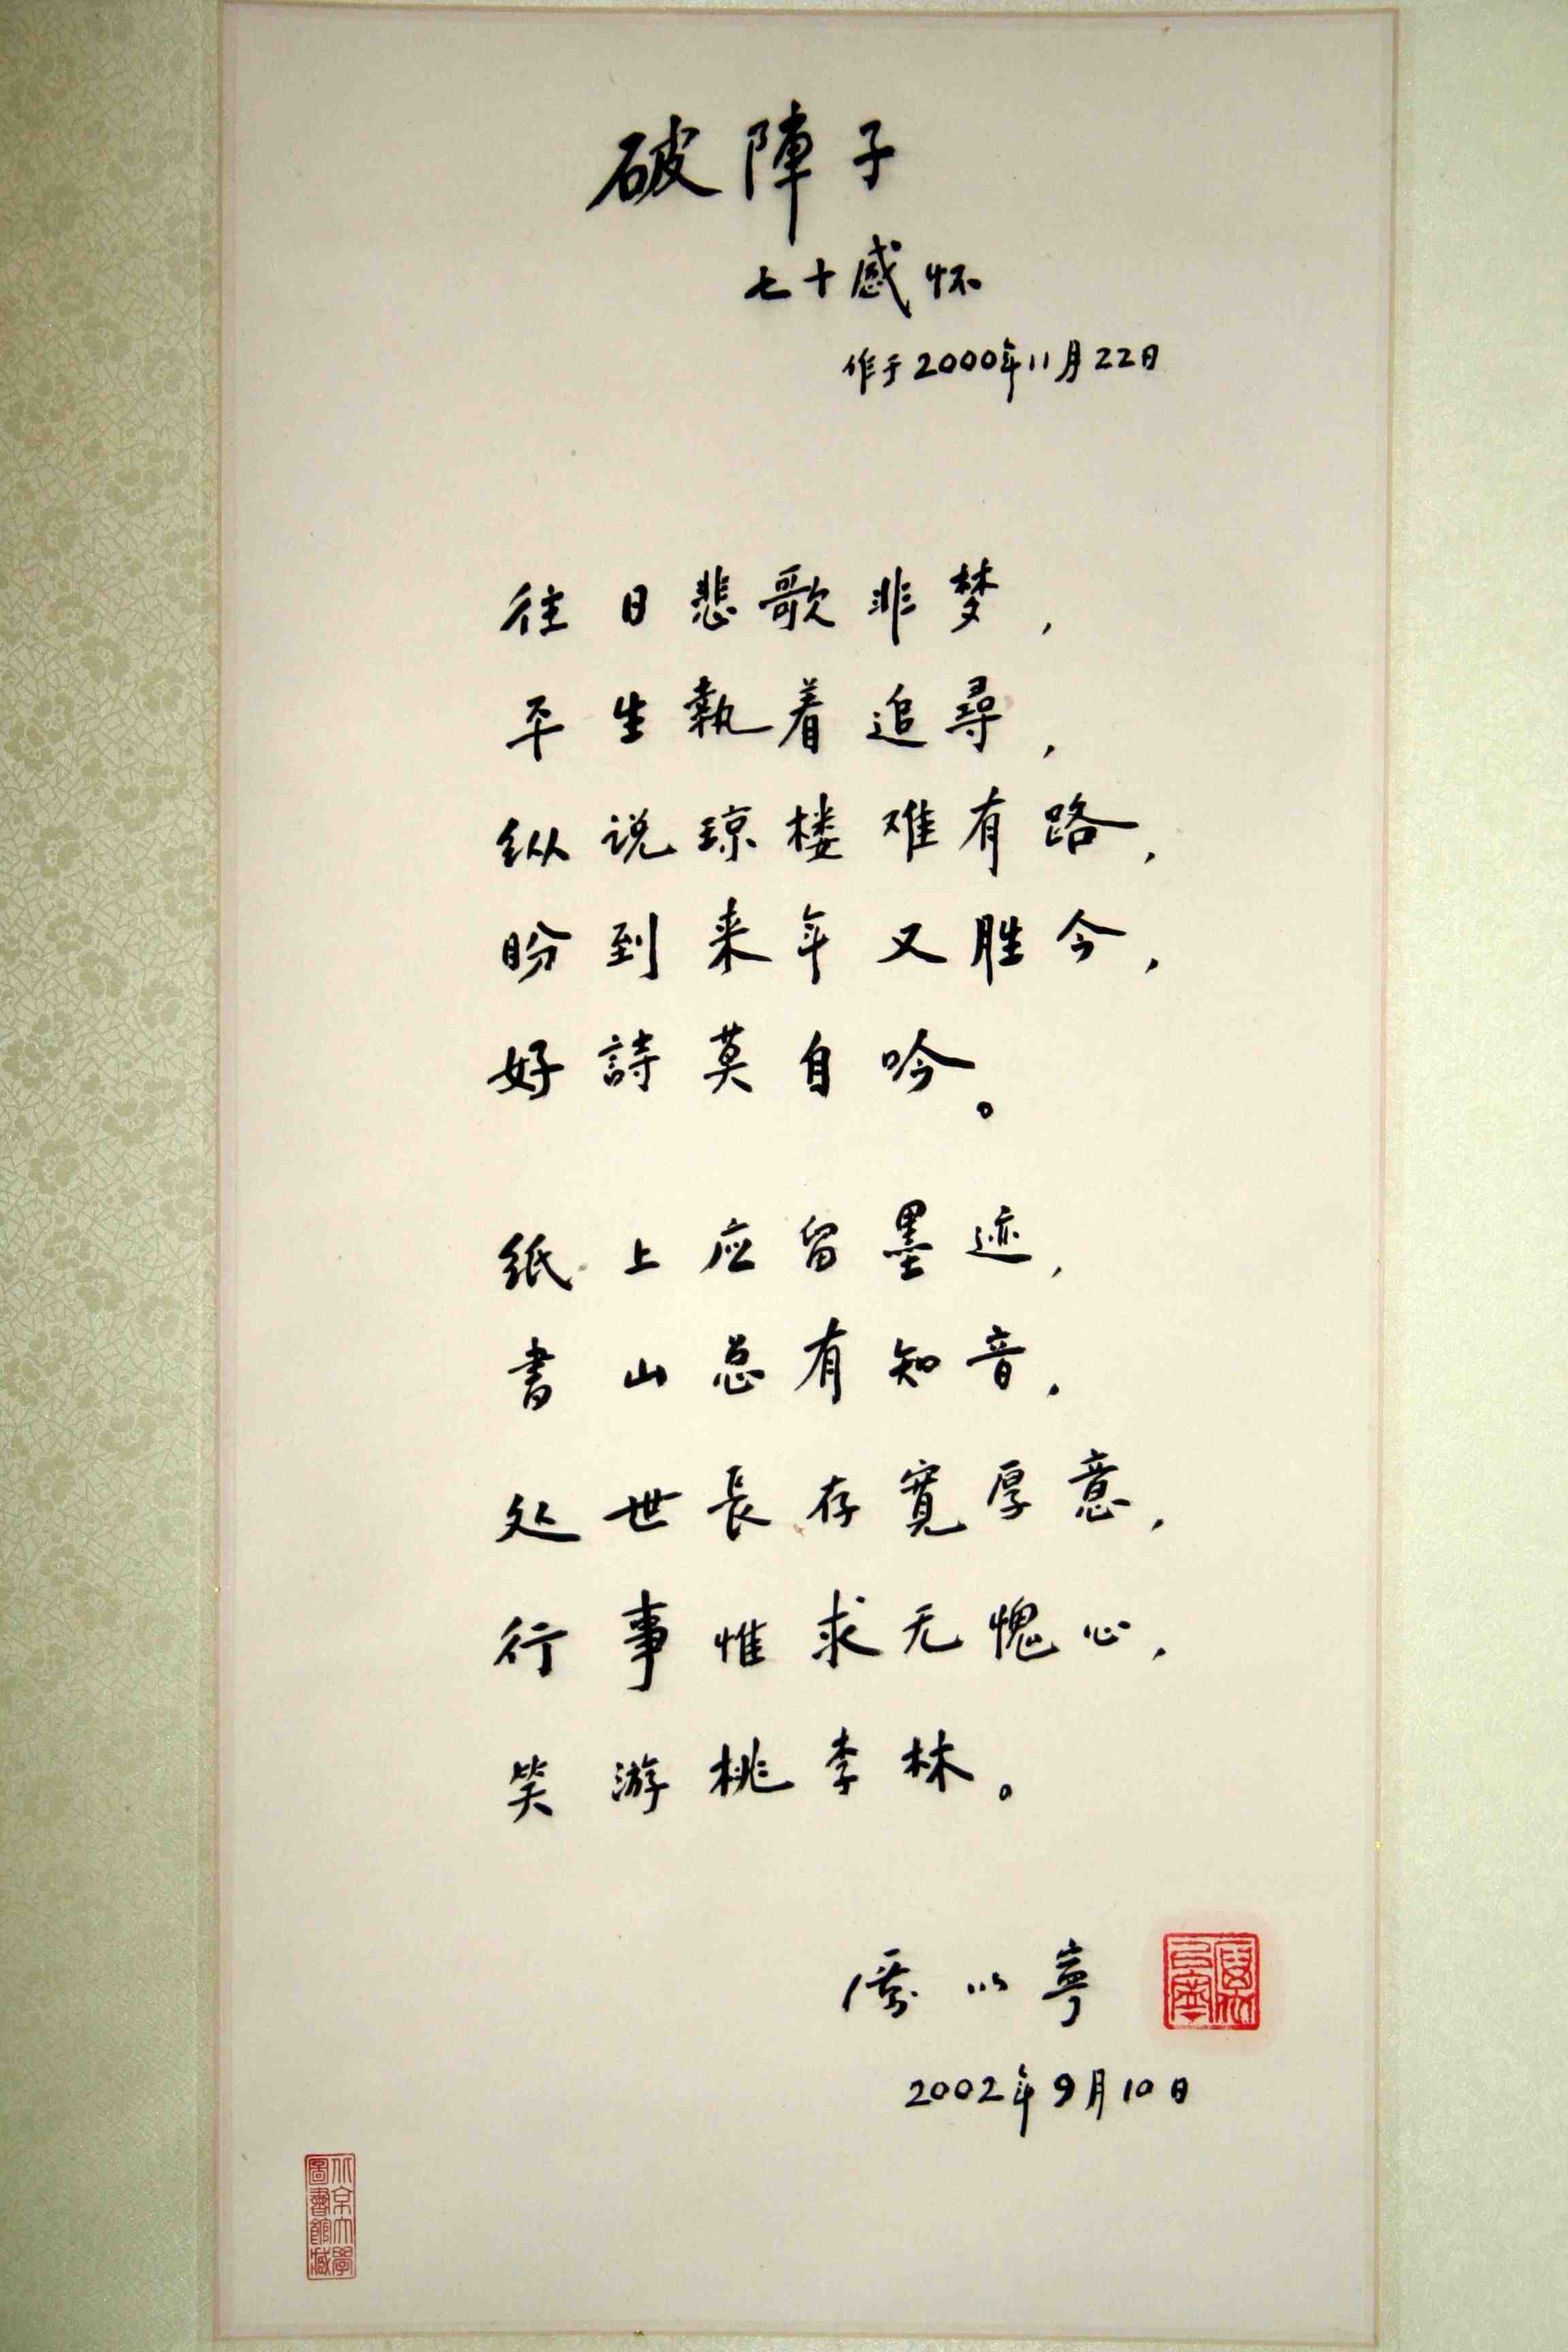 破陣子
七十感怀
作于2000年11月22日
往日悲歌非梦，
平生執着追尋，
纵说琼楼难有路，
盼到来年又胜今，
好詩莫自吟。
纸上应留墨迹，
書山总有知音，
处世長存寬厚意，
行事惟求无愧心，
笑游桃李林。
厉以寧
2002年9月10日
北京大學
圖書館藏